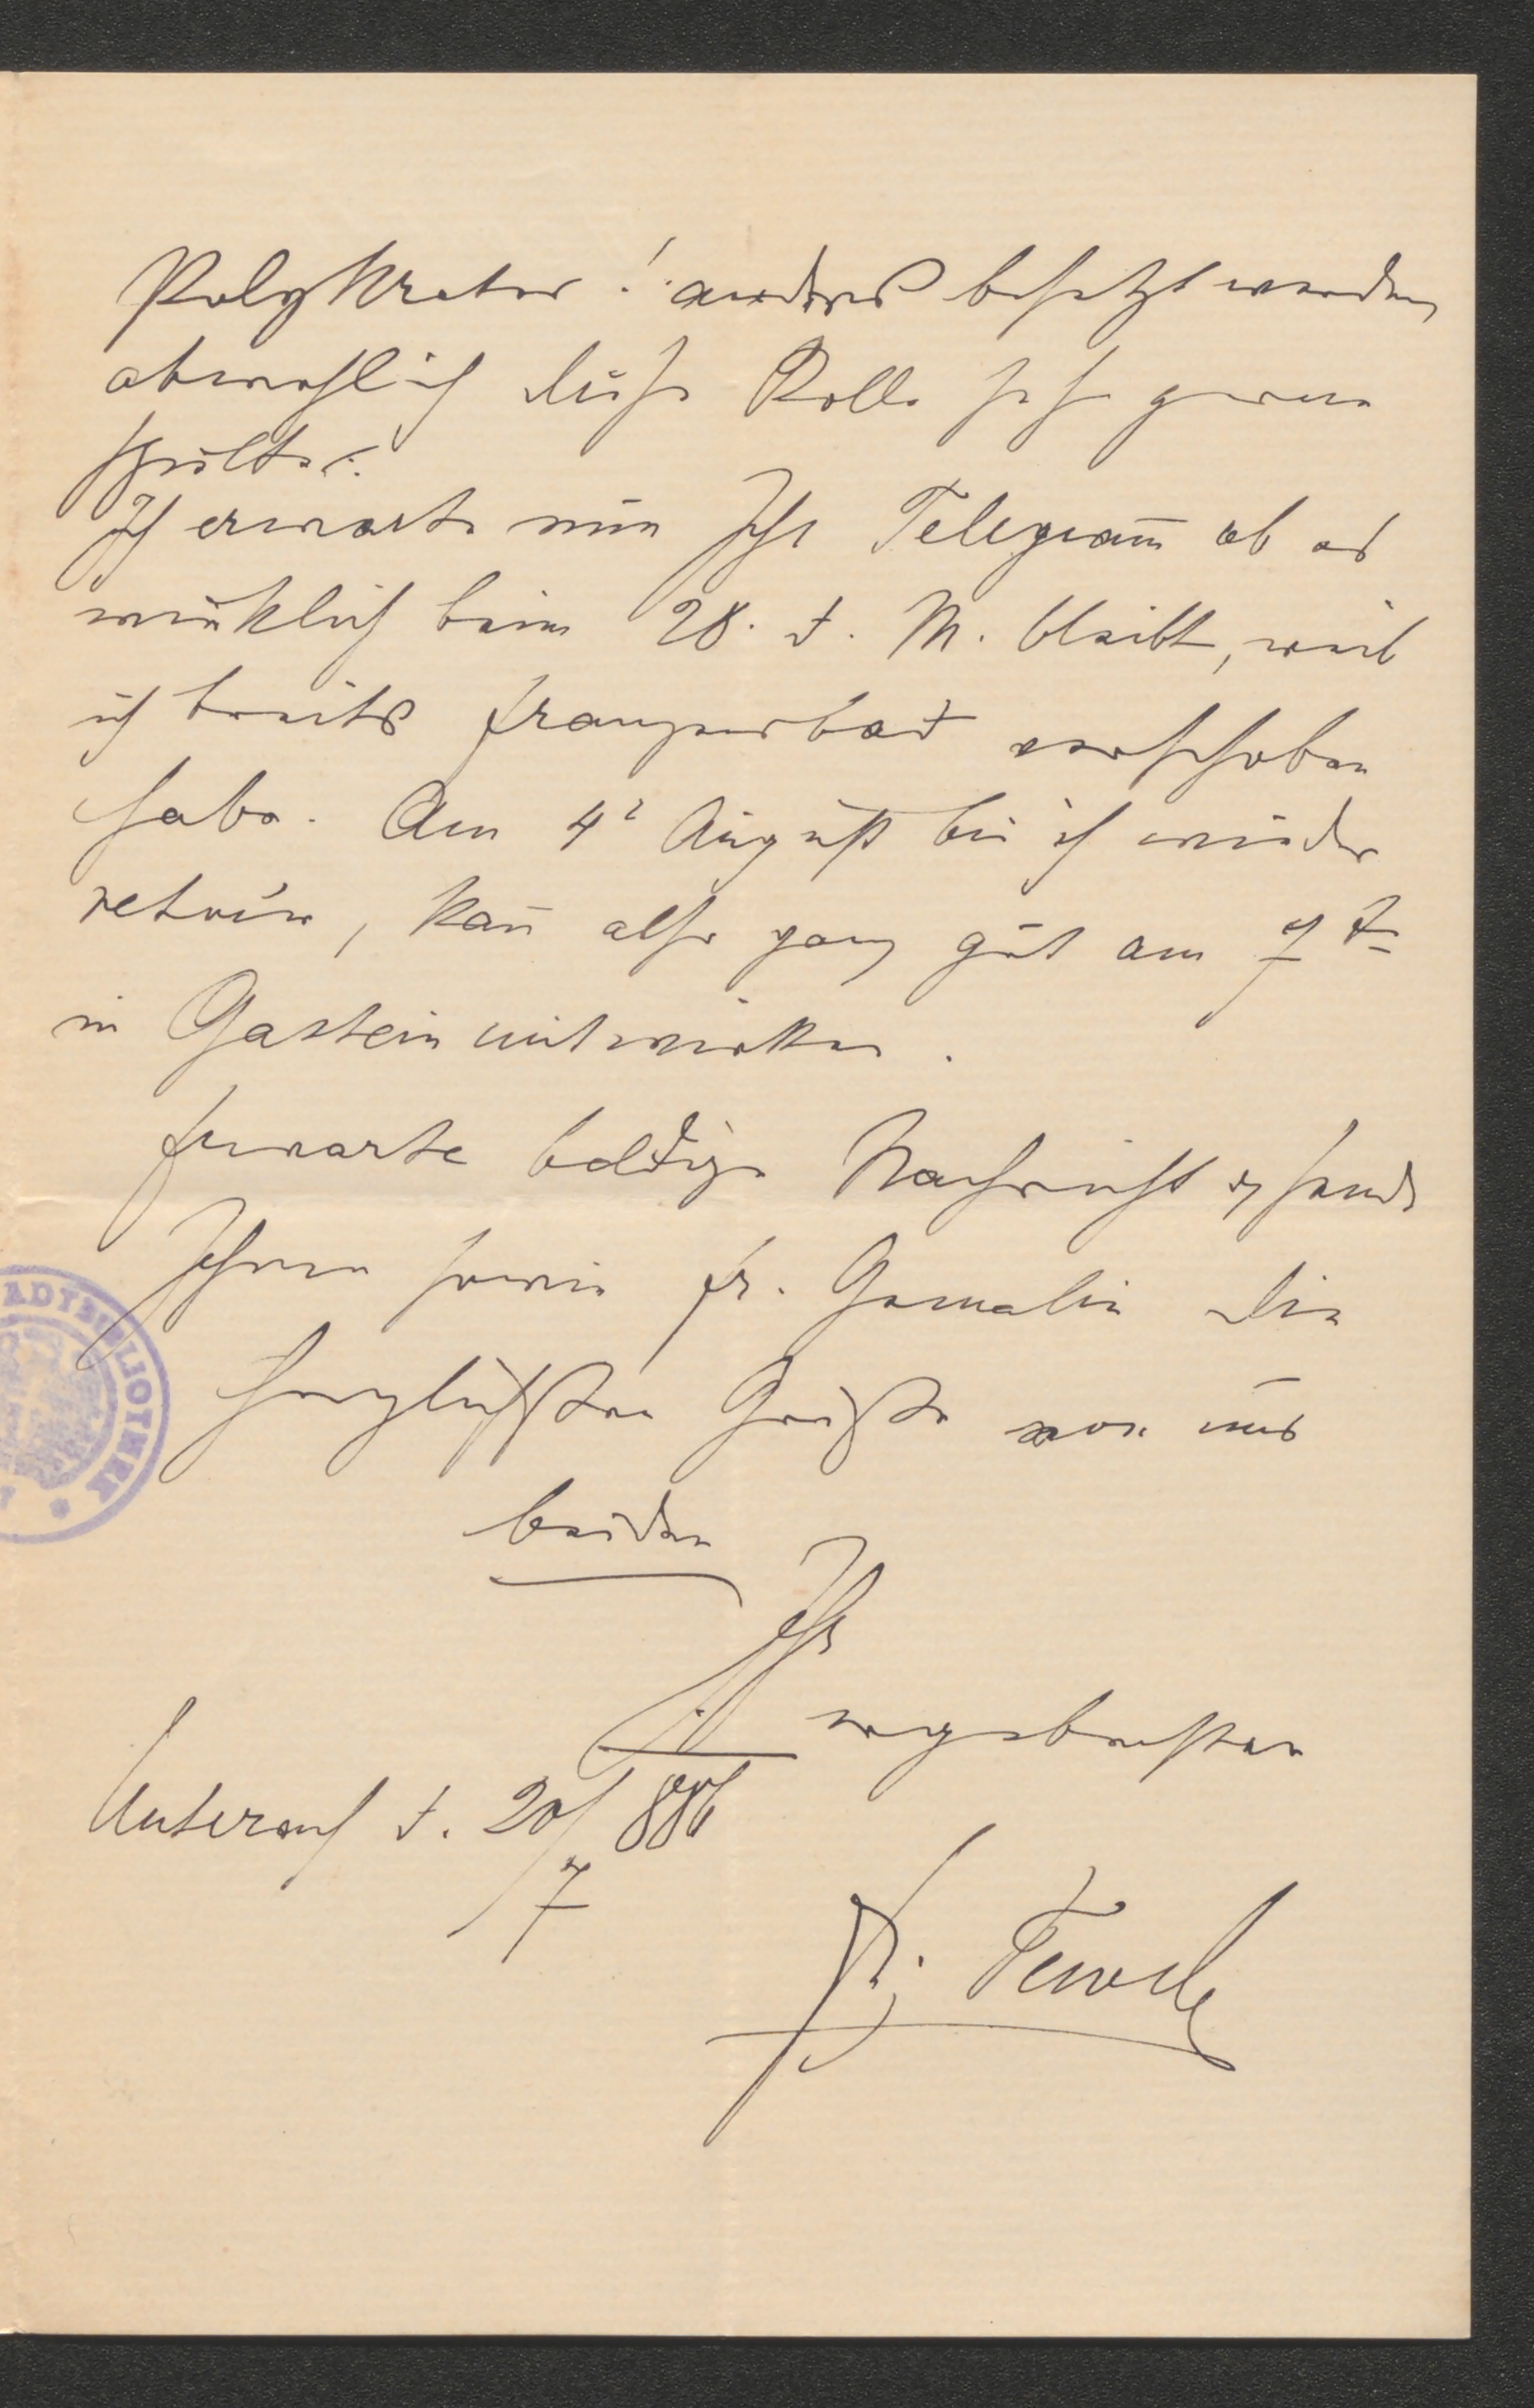 Polykrates! anders besetzt werden,
obwohl ich diese Rolle sehr gerne
spielte.
Ich erwarte nun Ihr Telegram̄ ob es
wirklich beim 28. d. M. bleibt, weil
ich bereits Franzensbad verschoben
habe. Am 4t August bin ich wieder
retour, kan̄ also ganz gut am 7t
in Gastein mitwirken.
Erwarte baldige Nachricht u sende
Ihnen sowie Fr. Gemalin die
herzlichsten Grüße von uns
beiden
Ihr
ergebenster
Unterach d. 20/7 886
Tewele
ADTBIBLIOTHEK